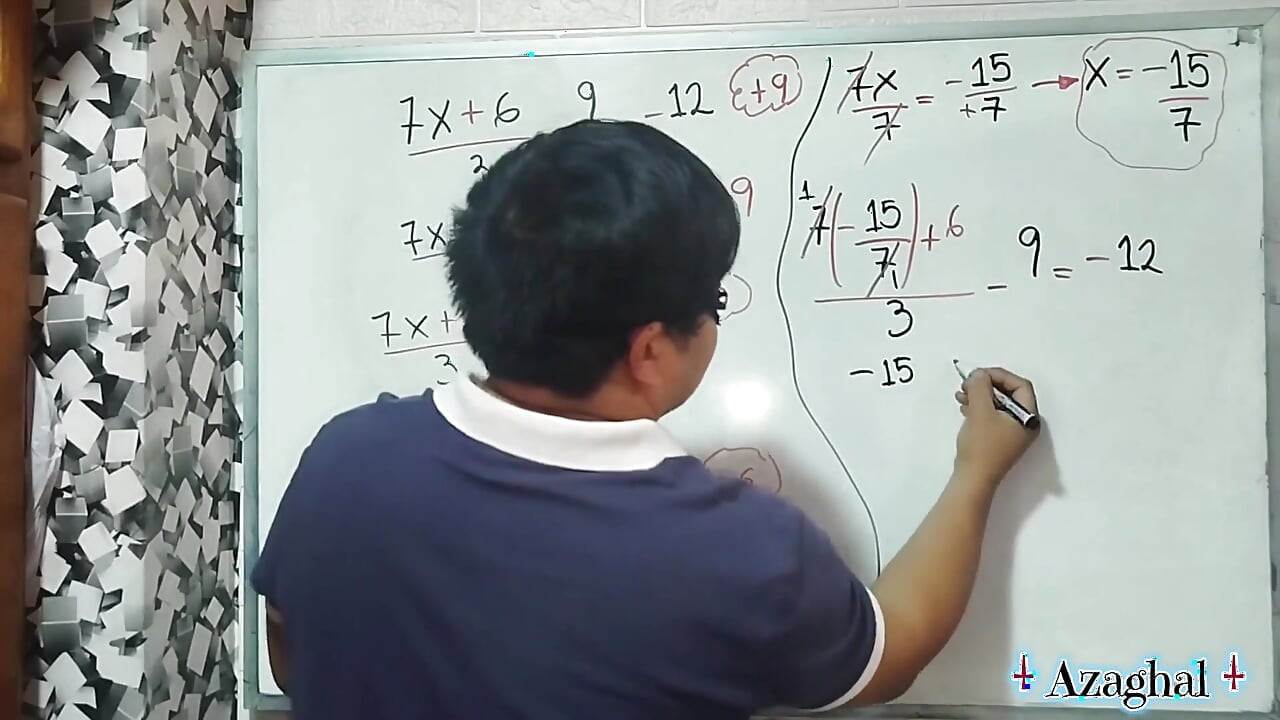 7x+6 9 -12 +9
3
9
7x
7x+
3
6
7x/7 = -15/+7 → x = -15/7
1
7(-15/7)+6
1
3
- 9 = -12
-15
Azaghal